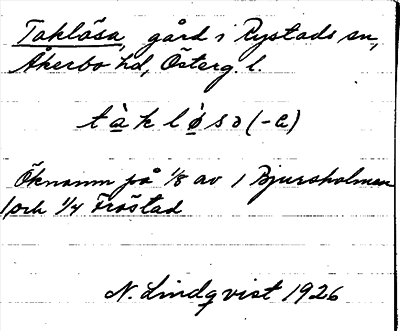 Taklösa, gård i Rystads sn,
Åkerbo hd, Österg. l.
tàk lø̀sɔ (-a)
Öknamn på 1/8 av 1 Bjursholmen
och 1/4 Fröstad
N. Lindqvist 1926